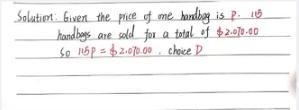 Solution: Given the price of one handbag is P. 115
handbags are sold for a total of $2.070.00
So 115P = $2.070.00. choice D